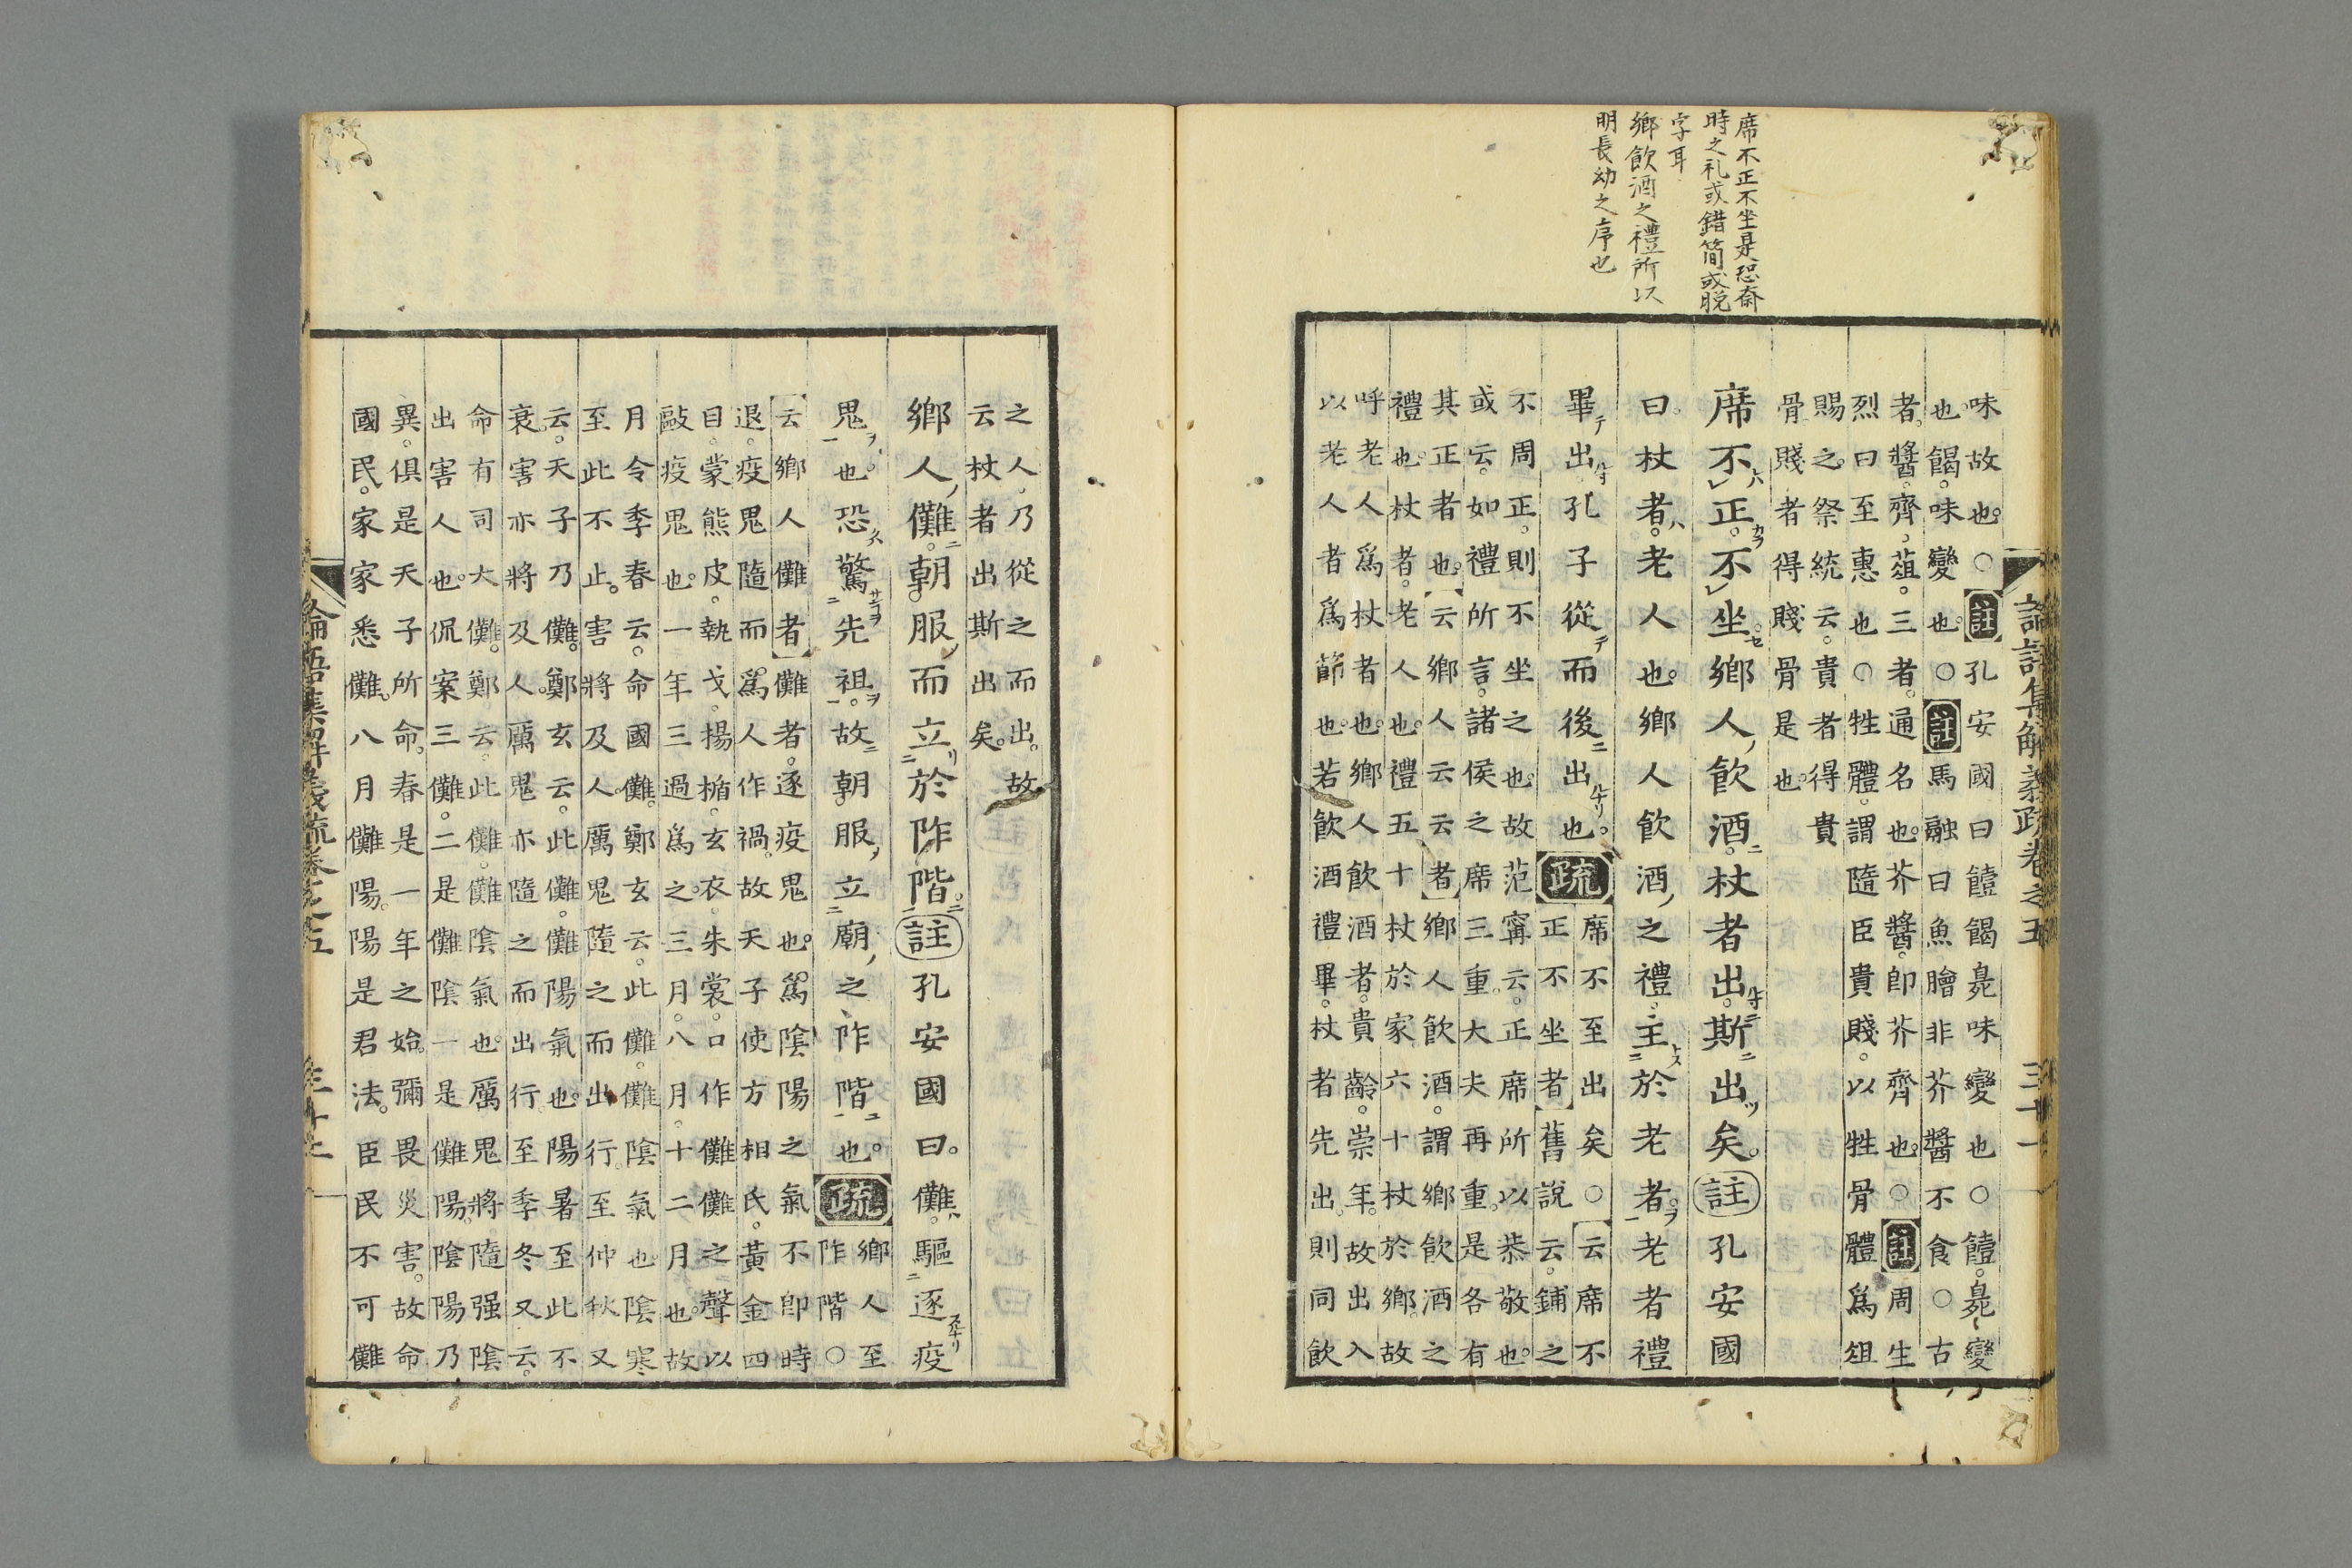 席不正不坐是恐斎
時之礼或錯簡或脱
字耳
鄉飲酒之禮所以
明長幼之序也
論語集解義疏卷之五 三十一
味故也。○註孔安國曰饐餲臭味變也○饐。臭變
也。餲。味變也。○註馬融曰魚膾非芥醬不食○古
者。醬。齊。菹。三者。通名也。芥醬。卽芥齊也。○註周生
烈曰至惠也○牲體。謂隨臣貴賤。以牲骨體爲俎
賜之。祭統云。貴者得貴
骨賤者得賤骨是也。
席不正。不坐。鄉人飲酒。杖者出。斯出矣。註孔安國
曰。杖者。老人也。鄉人飲酒之禮。主於老者。老者禮
畢出。孔子從而後出也。疏席不至出矣○云席不
正不坐者舊說云。鋪之
不周正。則不坐之也。故范寗云。正席所以恭敬也。
或云。如禮所言。諸侯之席三重。大夫再重。是各有
其正者也。云鄉人云云者鄉人飲酒。謂鄉飲酒之
禮也。杖者。老人也。禮五十杖於家六十杖於鄉。故
呼老人爲杖者也。鄉人飲酒者。貴齡。崇年。故出入
以老人者爲節也。若飲酒禮畢。杖者先出。則同飲
之人。乃從之而出。故
云杖者出斯出矣。
鄉人儺。朝服而立於阼階。註孔安國曰。儺。驅逐疫
鬼也。恐驚先祖。故朝服立廟之阼階也。疏鄉人至
阼階○
云鄉人儺者儺者。逐疫鬼也。爲陰陽之氣不卽時
退。疫鬼隨而爲人作禍。故天子使方相氏。黃金四
目。蒙熊皮。執戈。揚楯。玄衣。朱裳。口作儺儺之聲以
敺疫鬼也。一年三過爲之。三月。八月。十二月也。故
月令季春云。命國儺。鄭玄云。此儺。儺陰氣也。陰寒
至此不止。害將及人。厲鬼隨之而出行。至仲秋又
云。天子乃儺。鄭玄云。此儺。儺陽氣也。陽暑至此不
衰。害亦將及人。厲鬼亦隨之而出行。至季冬又云。
命有司大儺。鄭云。此儺。儺陰氣也。厲鬼將隨强陰
出害人也。侃案三儺。二是儺陰一是儺陽。陰陽乃
異。俱是天子所命。春是一年之始。彌畏災害。故命
國民。家家悉儺。八月儺陽。陽是君法。臣民不可儺
論語集解義疏卷之五